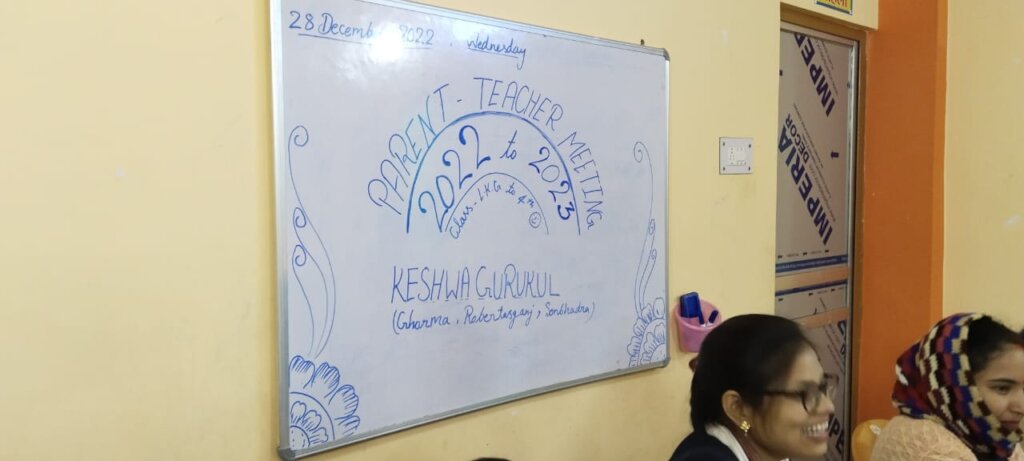 28 December 2022 Wednesday
PARENT - TEACHER MEETING
2022 to 2023
Class - LKG to 4th
KESHWA GURUKUL
(Gharma, Robertsganj, Sonbhadra)
IMPERIA
DECOR
IMPERIA
DECOR
IMPERIA